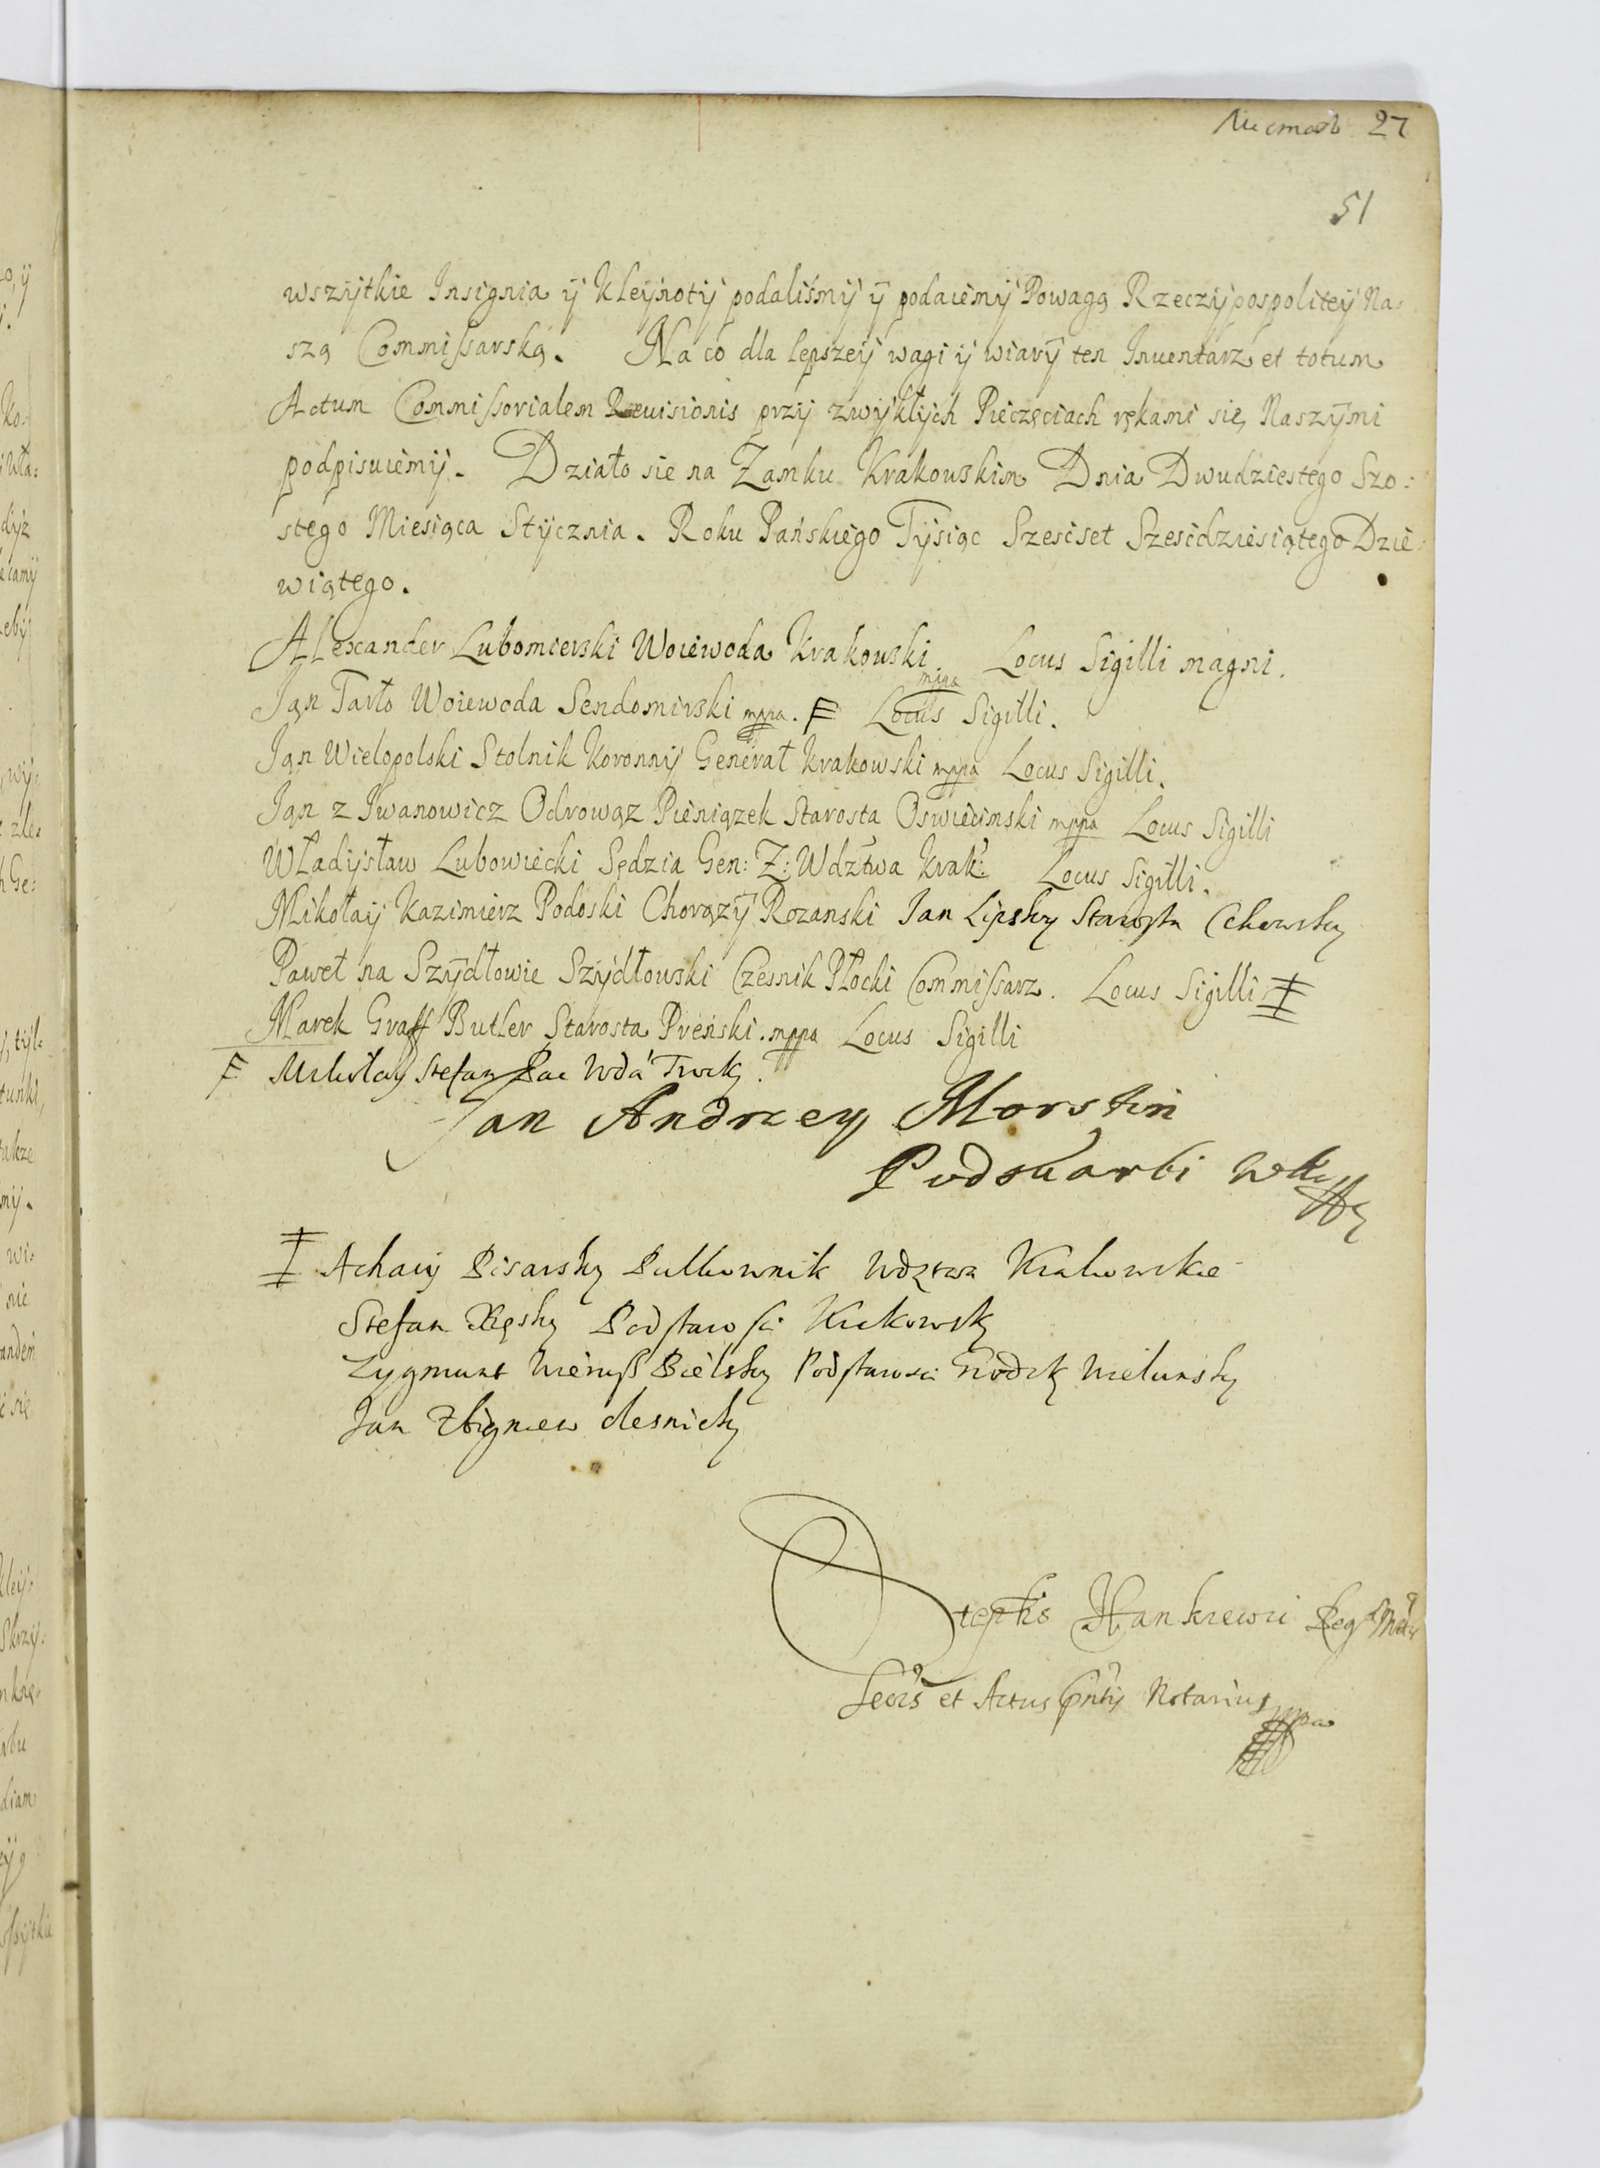 27
51
wszytkie Insignia y Kleynoty podaliśmy y podaiemy Powagą Rzeczypospolitey Na-
szą Commissarską. Na co dla lepszey wagi y wiary ten Inwentarz et totum
Actum Commissorialem Reuisionis przy zwykłych Pieczęciach rękami się Naszymi
podpisuiemy. Działo sie na Zamku Krakowskim Dnia Dwudziestego Szo:
stego Miesiąca Stycznia. Roku Pańskiego Tysiąc Szescset Szescdziesiątego Dzie
wiątego.
Alexander Lubomierski Woiewoda Krakowski mppa. Locus Sigilli magni.
Jan Tarło Woiewoda Sendomirski mppa. F Locus Sigilli.
Jan Wielopolski Stolnik Koronny Generał Krakowski mppa Locus Sigilli.
Jan z Iwanowicz Odrowąz Pieniązek Starosta Oswiecimski mppa Locus Sigilli
Władysław Lubowiecki Sędzia Gen: Z: Wdztwa Krak: Locus Sigilli.
Mikołay Kazimierz Podoski Chorązy Rozanski Jan Lipsky Starosta Cchowsky
Paweł na Szydłowie Szydłowski Czesnik Płocki Commissarz. Locus Sigilli ‡
Marek Graff Butler Starosta Preński. mppa Locus Sigilli
F Mikołay Stefan Pac Wda Trock.
Jan Andrzey Morstin
Podskarbi WK
‡ Achacy Pisarsky Pułkownik Wdztwa Krakowskie
Stefan Podstarości Krakowsky
Zygmunt Wierusz Bielsky Podstarosci Grodzk Wielunsky
Jan Zbigniew Olesnicky
Stephs Hankiewicz Reg Metr
et Actus pntis Notarius mppa